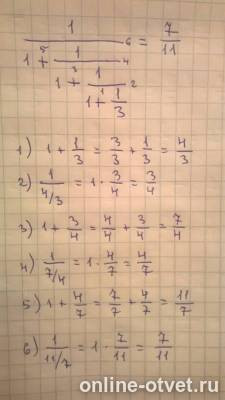 1/(1 + 1/(1 + 1/(1 + 1/3))) = 7/11
5 6 3 4 1 2
1) 1 + 1/3 = 3/3 + 1/3 = 4/3
2) 1/(4/3) = 1 · 3/4 = 3/4
3) 1 + 3/4 = 4/4 + 3/4 = 7/4
4) 1/(7/4) = 1 · 4/7 = 4/7
5) 1 + 4/7 = 7/7 + 4/7 = 11/7
6) 1/(11/7) = 1 · 7/11 = 7/11
online-otvet.ru